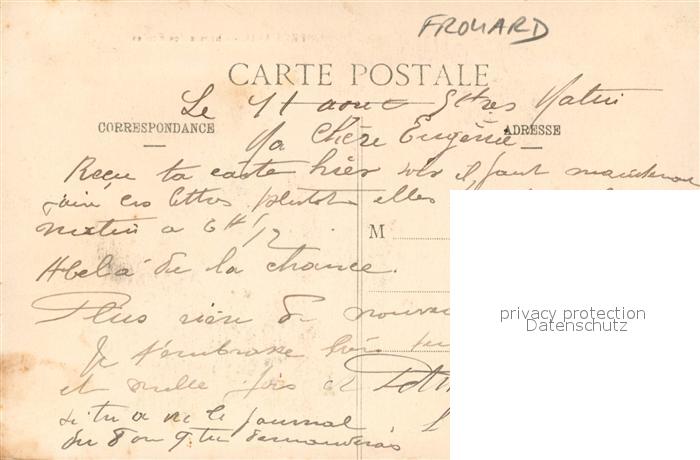 FROUARD
CARTE POSTALE
Le 11 aout 5 hres Matin
CORRESPONDANCE
ADRESSE
Ma Chère Eugénie
Reçu ta carte hier soir il faut maintenant
faire ces lettres plutot elles
matin a 6 H 1/2
M
Abel a de la chance.
Plus rien de nouveau
privacy protection
Datenschutz
Je t'embrasse bien
et mille fois et
si tu a vu le journal
du 8 ou 9 tu demanderas